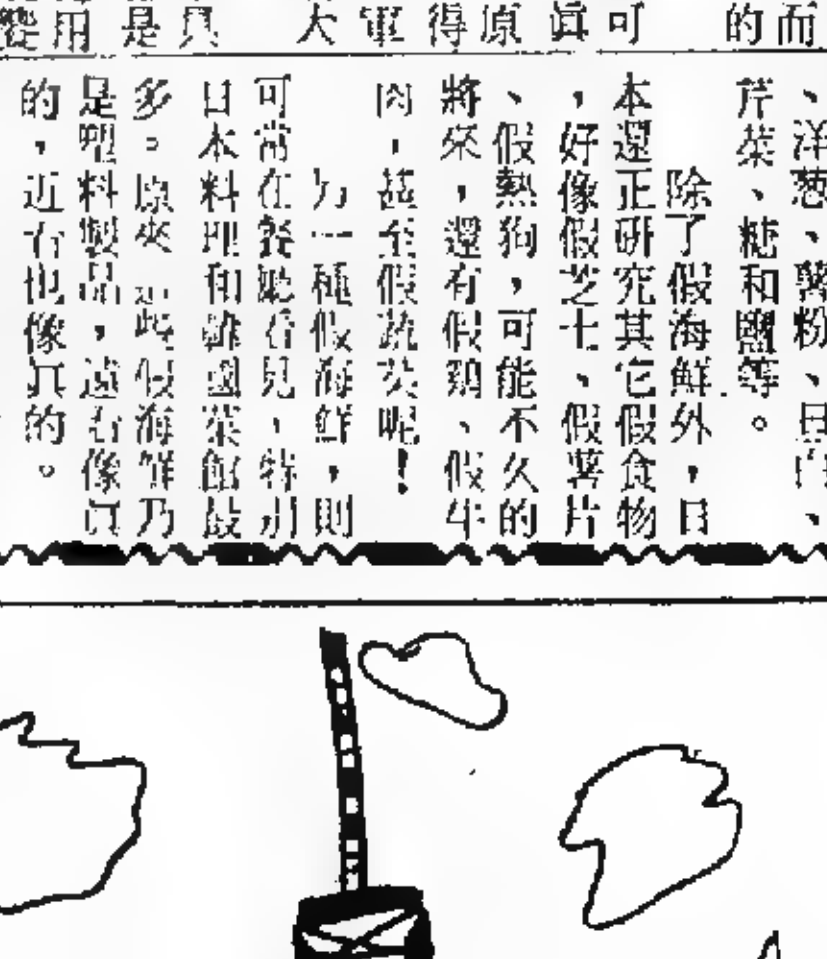 而
的
可
眞
原
得
軍
大
具
是
用
、洋葱、薯粉、蛋白、
芹菜、糖和鹽等。
除了假海鮮外，日
本還正研究其它假食物
，好像假芝士、假薯片
、假熱狗，可能不久的
將來，還有假鷄、假牛
肉，甚至假蔬菜呢！
另一種假海鮮，則
可常在餐廳看見，特別
日本料理和韓國菜館最
多。原來這些假海鮮乃
是塑料製品，遠看像眞
的，近看也像眞的。